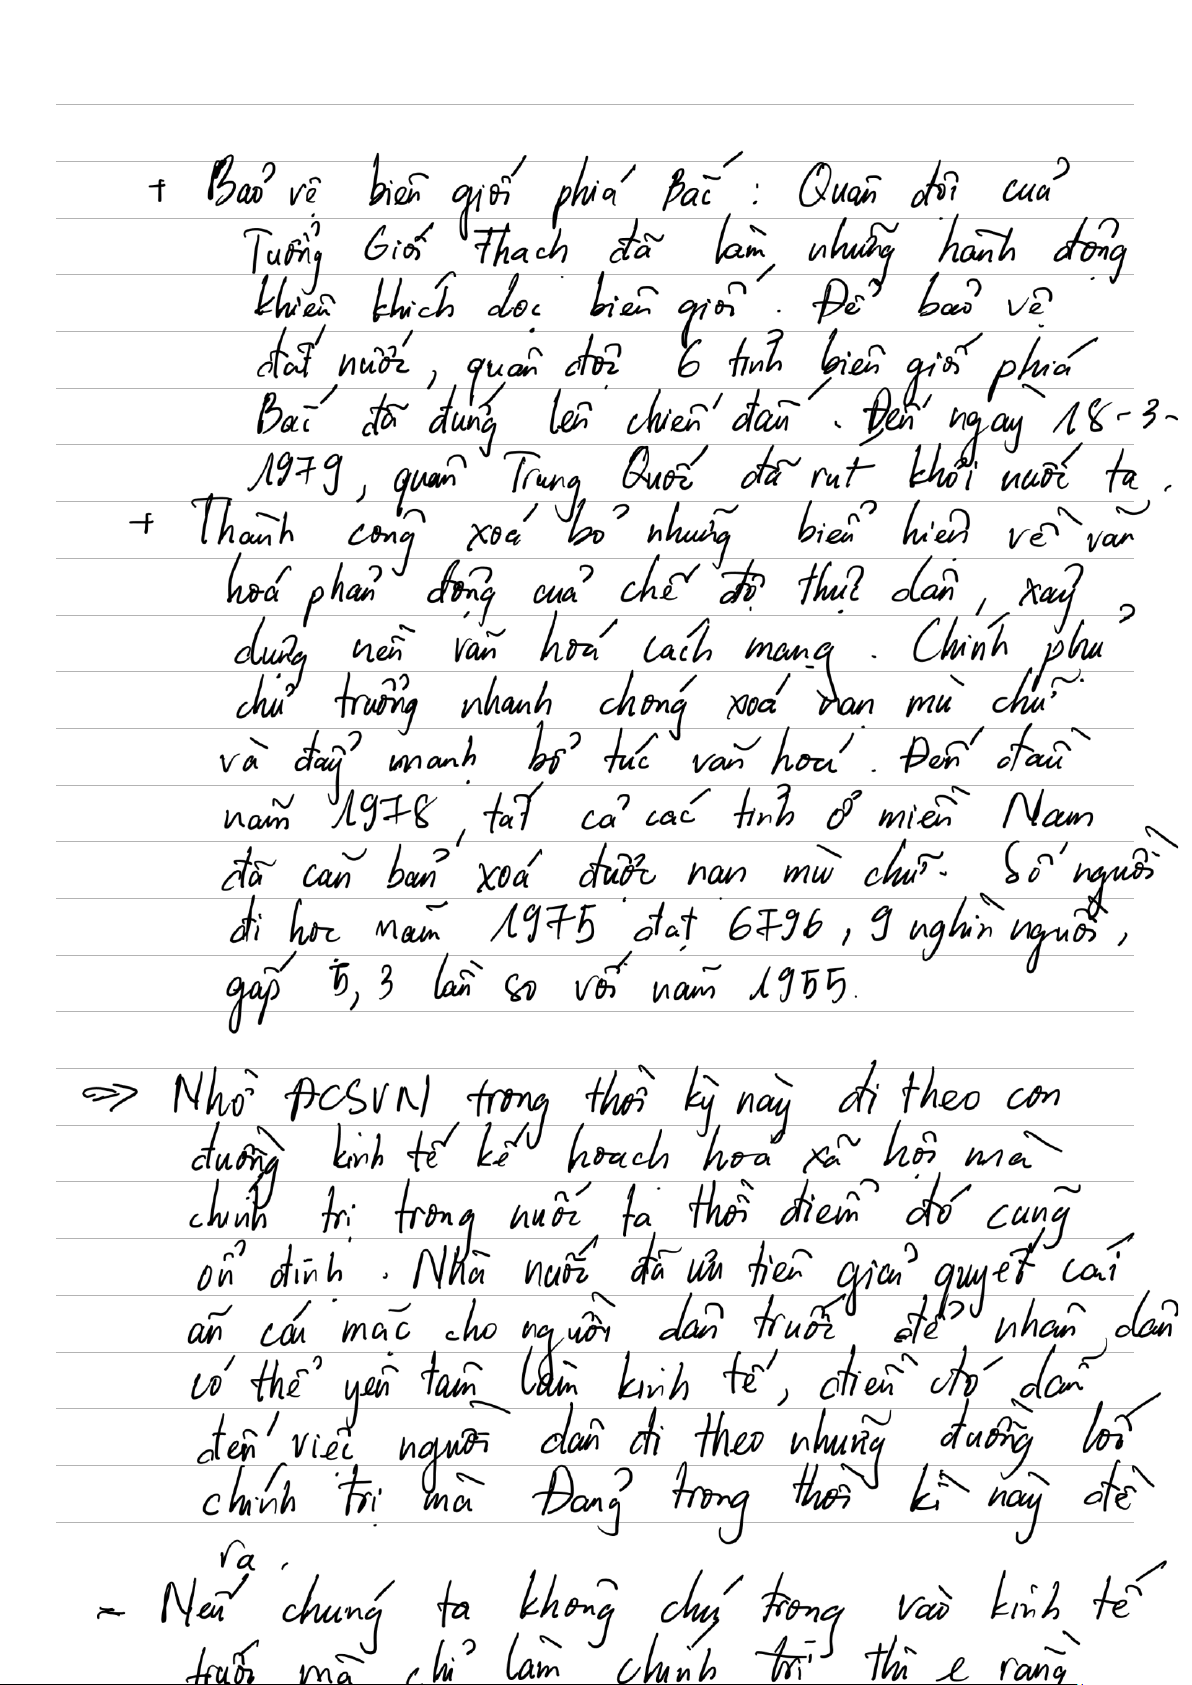 + Bảo vệ biên giới phía Bắc : Quân đội của
Tưởng Giới Thạch đã làm những hành động
khiêu khích dọc biên giới . Để bảo vệ
đất nước , quân đội 6 tỉnh biên giới phía
Bắc đã đứng lên chiến đấu . Đến ngày 18-3-
1979 , quân Trung Quốc đã rút khỏi nước ta .
+ Thành công xoá bỏ những biểu hiện về văn
hoá phản động của chế độ thực dân , xây
dựng nền văn hoá cách mạng . Chính phủ
chủ trương nhanh chóng xoá nạn mù chữ
và đẩy mạnh bổ túc văn hoá . Đến đầu
năm 1978 , tất cả các tỉnh ở miền Nam
đã căn bản xoá được nạn mù chữ . Số người
đi học năm 1975 đạt 6796 , 9 nghìn người ,
gấp 5 , 3 lần so với năm 1955 .
=> Nhờ ĐCSVN trong thời kỳ này đi theo con
đường kinh tế kế hoạch hoá xã hội mà
chính trị trong nước ta thời điểm đó cũng
ổn định . Nhà nước đã ưu tiên giải quyết cái
ăn cái mặc cho người dân trước để nhân dân
có thể yên tâm làm kinh tế , điều đó dẫn
đến việc người dân đi theo những đường lối
chính trị mà Đảng trong thời kì này đề
ra .
- Nếu chúng ta không chú trọng vào kinh tế
trước mà chỉ làm chính trị thì e rằng